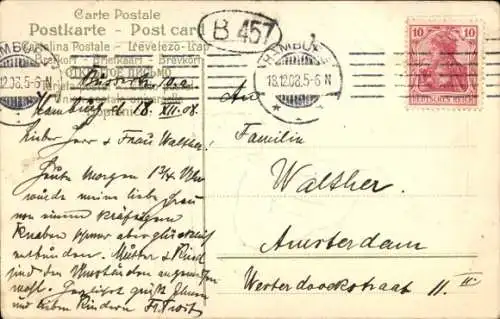 Carte Postale
Postkarte - Post card
Cartolina Postale - Levelező-Lap
Brevkort - Briefkaart - Brevkort
B 457
HAMBURG
18.12.08.5-6 N
12.08.5-6 N
10 10
DEUTSCHES REICH
Hamburg 18. XII. 08.
Lieber Herr & Frau Walther!
Heute Morgen 1¼ Uhr
wurde meine liebe Frau
von einem kräftigen
Knaben überglücklich
entbunden. Mutter & Kind
sind den Umständen angemessen
wohl. grüßt Ihnen
und lieben Kindern
An
Familie
Walther
Amsterdam
II. III